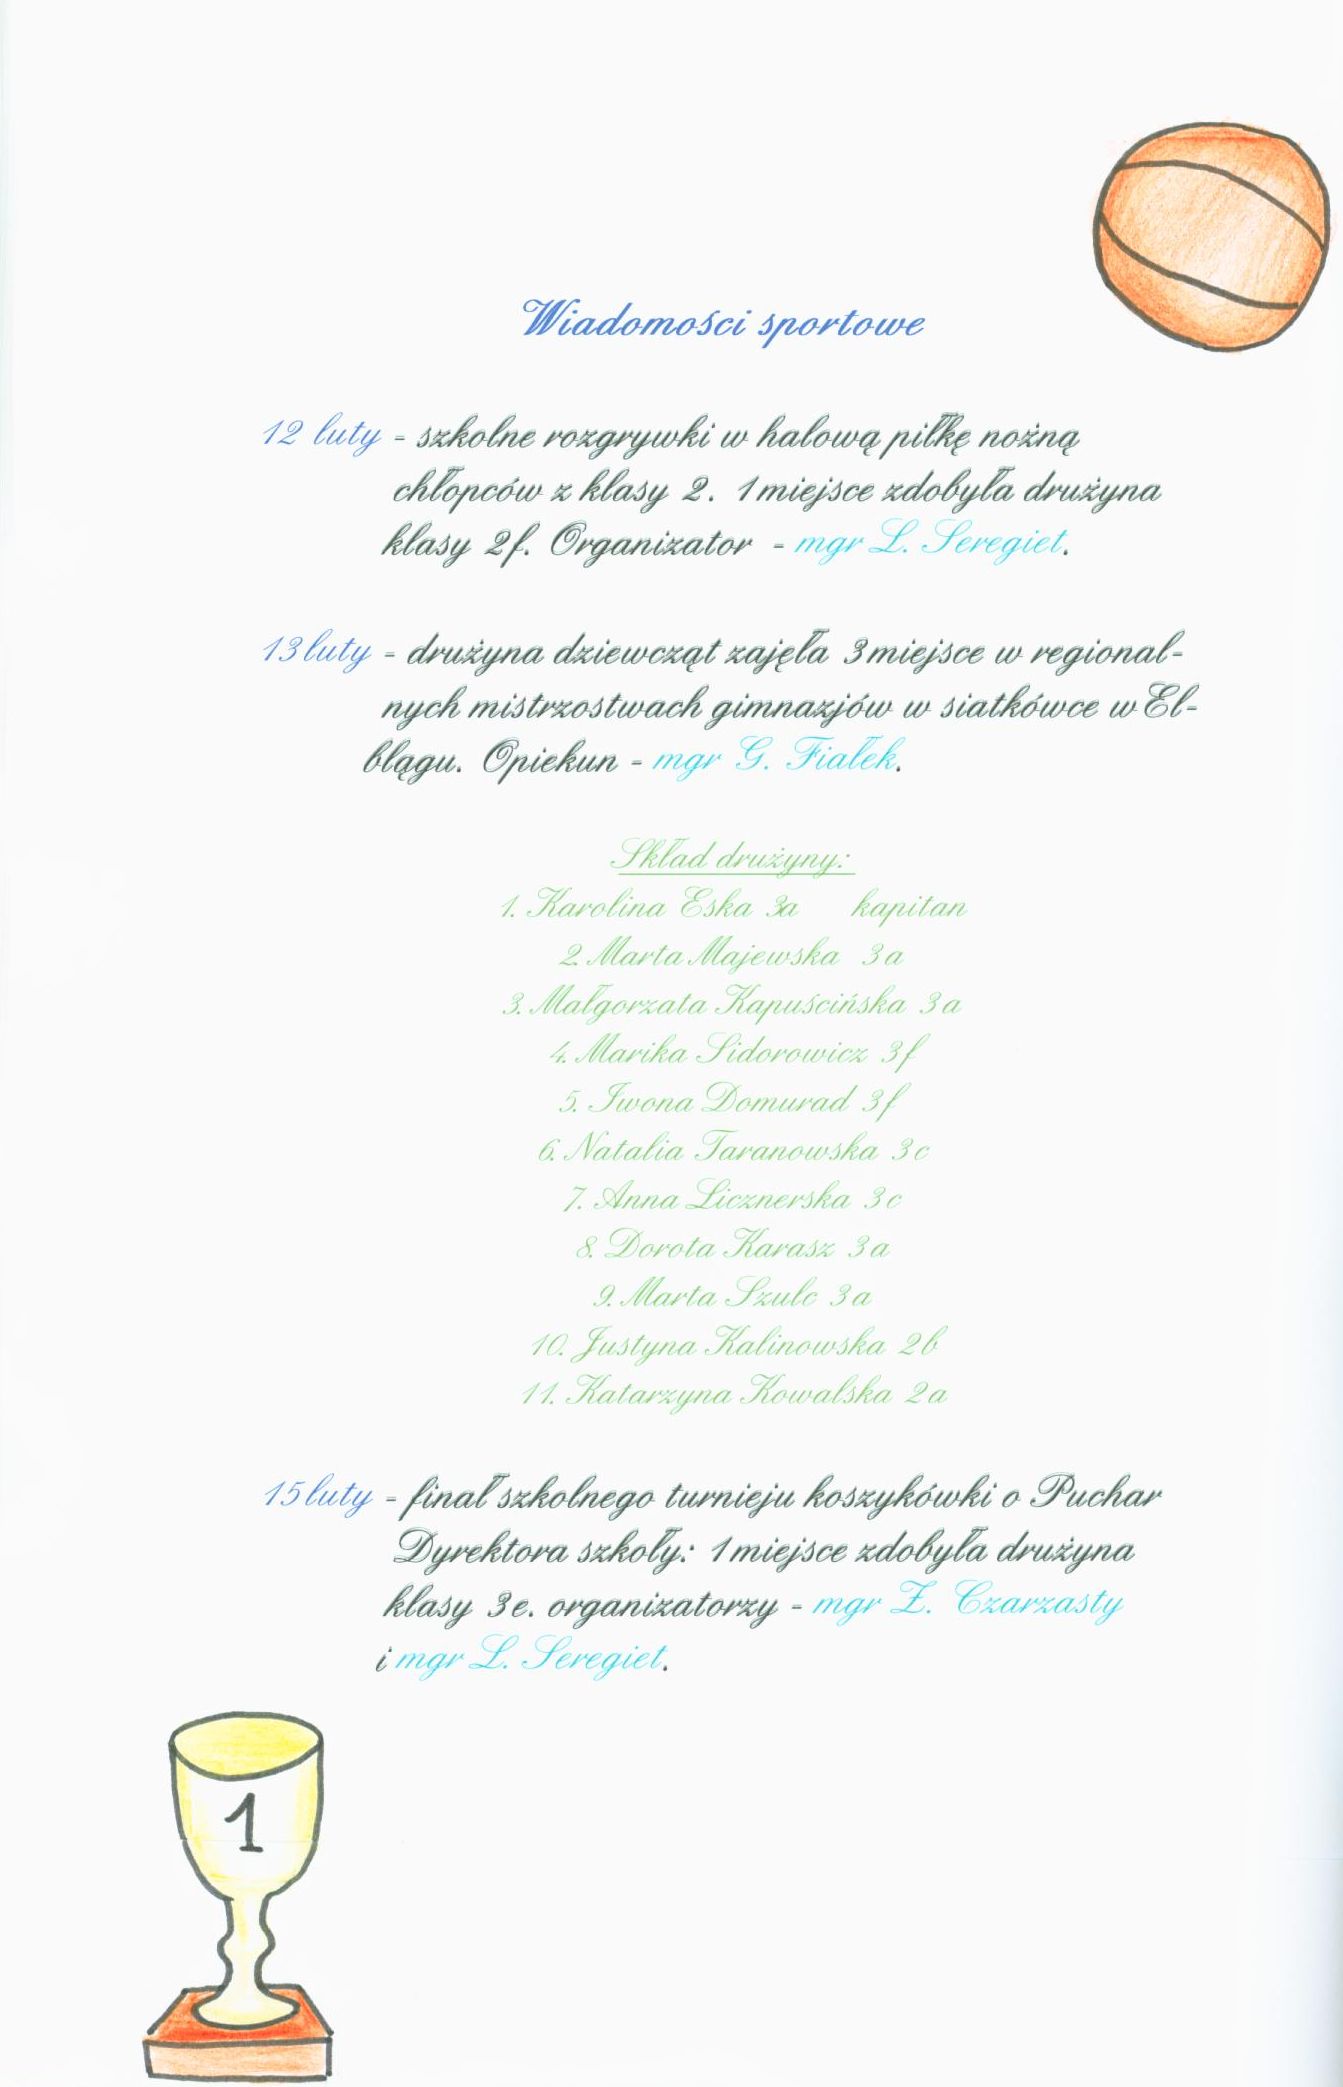 Wiadomości sportowe
12 luty - szkolne rozgrywki w halową piłkę nożną
chłopców z klasy 2. 1 miejsce zdobyła drużyna
klasy 2f. Organizator - mgr L. Seregiet.
13 luty - drużyna dziewcząt zajęła 3 miejsce w regional-
nych mistrzostwach gimnazjów w siatkówce w El-
blągu. Opiekun - mgr G. Fiałek.
Skład drużyny:
1. Karolina Eska 3a kapitan
2. Marta Majewska 3a
3. Małgorzata Kapuścińska 3a
4. Marika Sidorowicz 3f
5. Iwona Domurad 3f
6. Natalia Taranowska 3c
7. Anna Licznerska 3c
8. Dorota Karasz 3a
9. Marta Szulc 3a
10. Justyna Kalinowska 2b
11. Katarzyna Kowalska 2a
15 luty - finał szkolnego turnieju koszykówki o Puchar
Dyrektora szkoły: 1 miejsce zdobyła drużyna
klasy 3e. organizatorzy - mgr Z. Czarzasty
i mgr L. Seregiet.
1